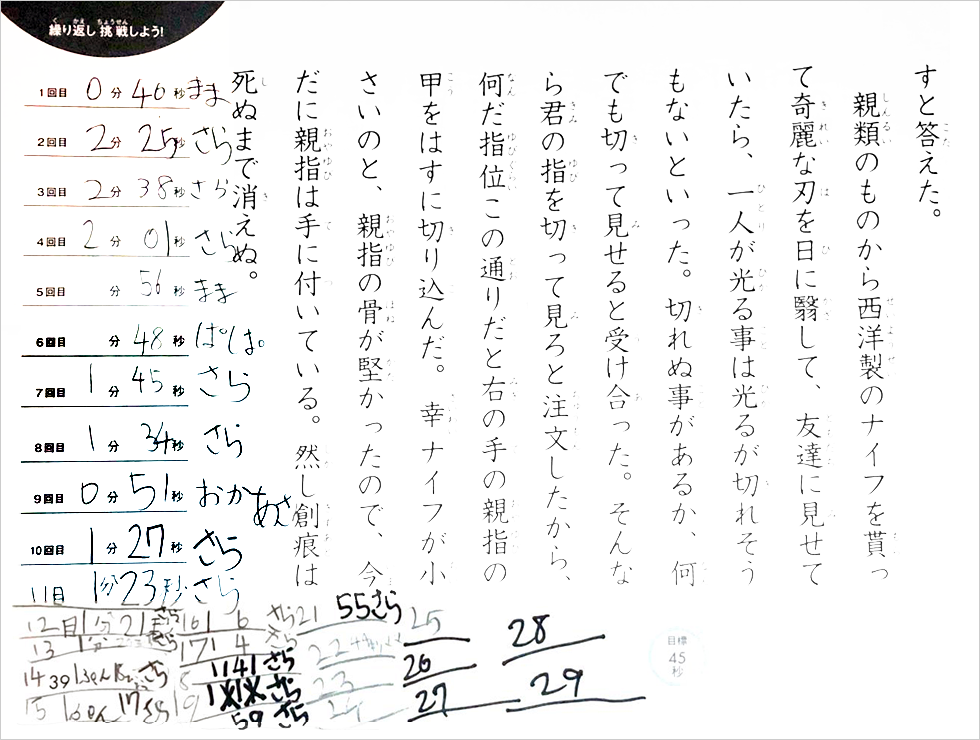 繰り返し挑戦しよう!
すと答えた。
親類のものから西洋製のナイフを貰っ
て奇麗な刃を日に翳して、友達に見せて
いたら、一人が光る事は光るが切れそう
もないといった。切れぬ事があるか、何
でも切って見せると受け合った。そんな
ら君の指を切って見ろと注文したから、
何だ指位この通りだと右の手の親指の
甲をはすに切り込んだ。幸ナイフが小
さいのと、親指の骨が堅かったので、今
だに親指は手に付いている。然し創痕は
死ぬまで消えぬ。
1回目 0分46秒 まま
2回目 2分25秒 さら
3回目 2分38秒 さら
4回目 2分01秒 さら
5回目 分56秒 まま
6回目 分48秒 ぱぱ
7回目 1分45秒 さら
8回目 1分34秒 さら
9回目 0分51秒 おかあさ
10回目 1分27秒 さら
11目 1分23秒 さら
12目 1分21 さら
13 1分 さら
14 39 さら
15 17 さら
16 1 6 さら
17 1 4 さら
1141 さら
19
59 さら
21 55 さら
22
23
24
25
26
27
28
29
目標
45
秒